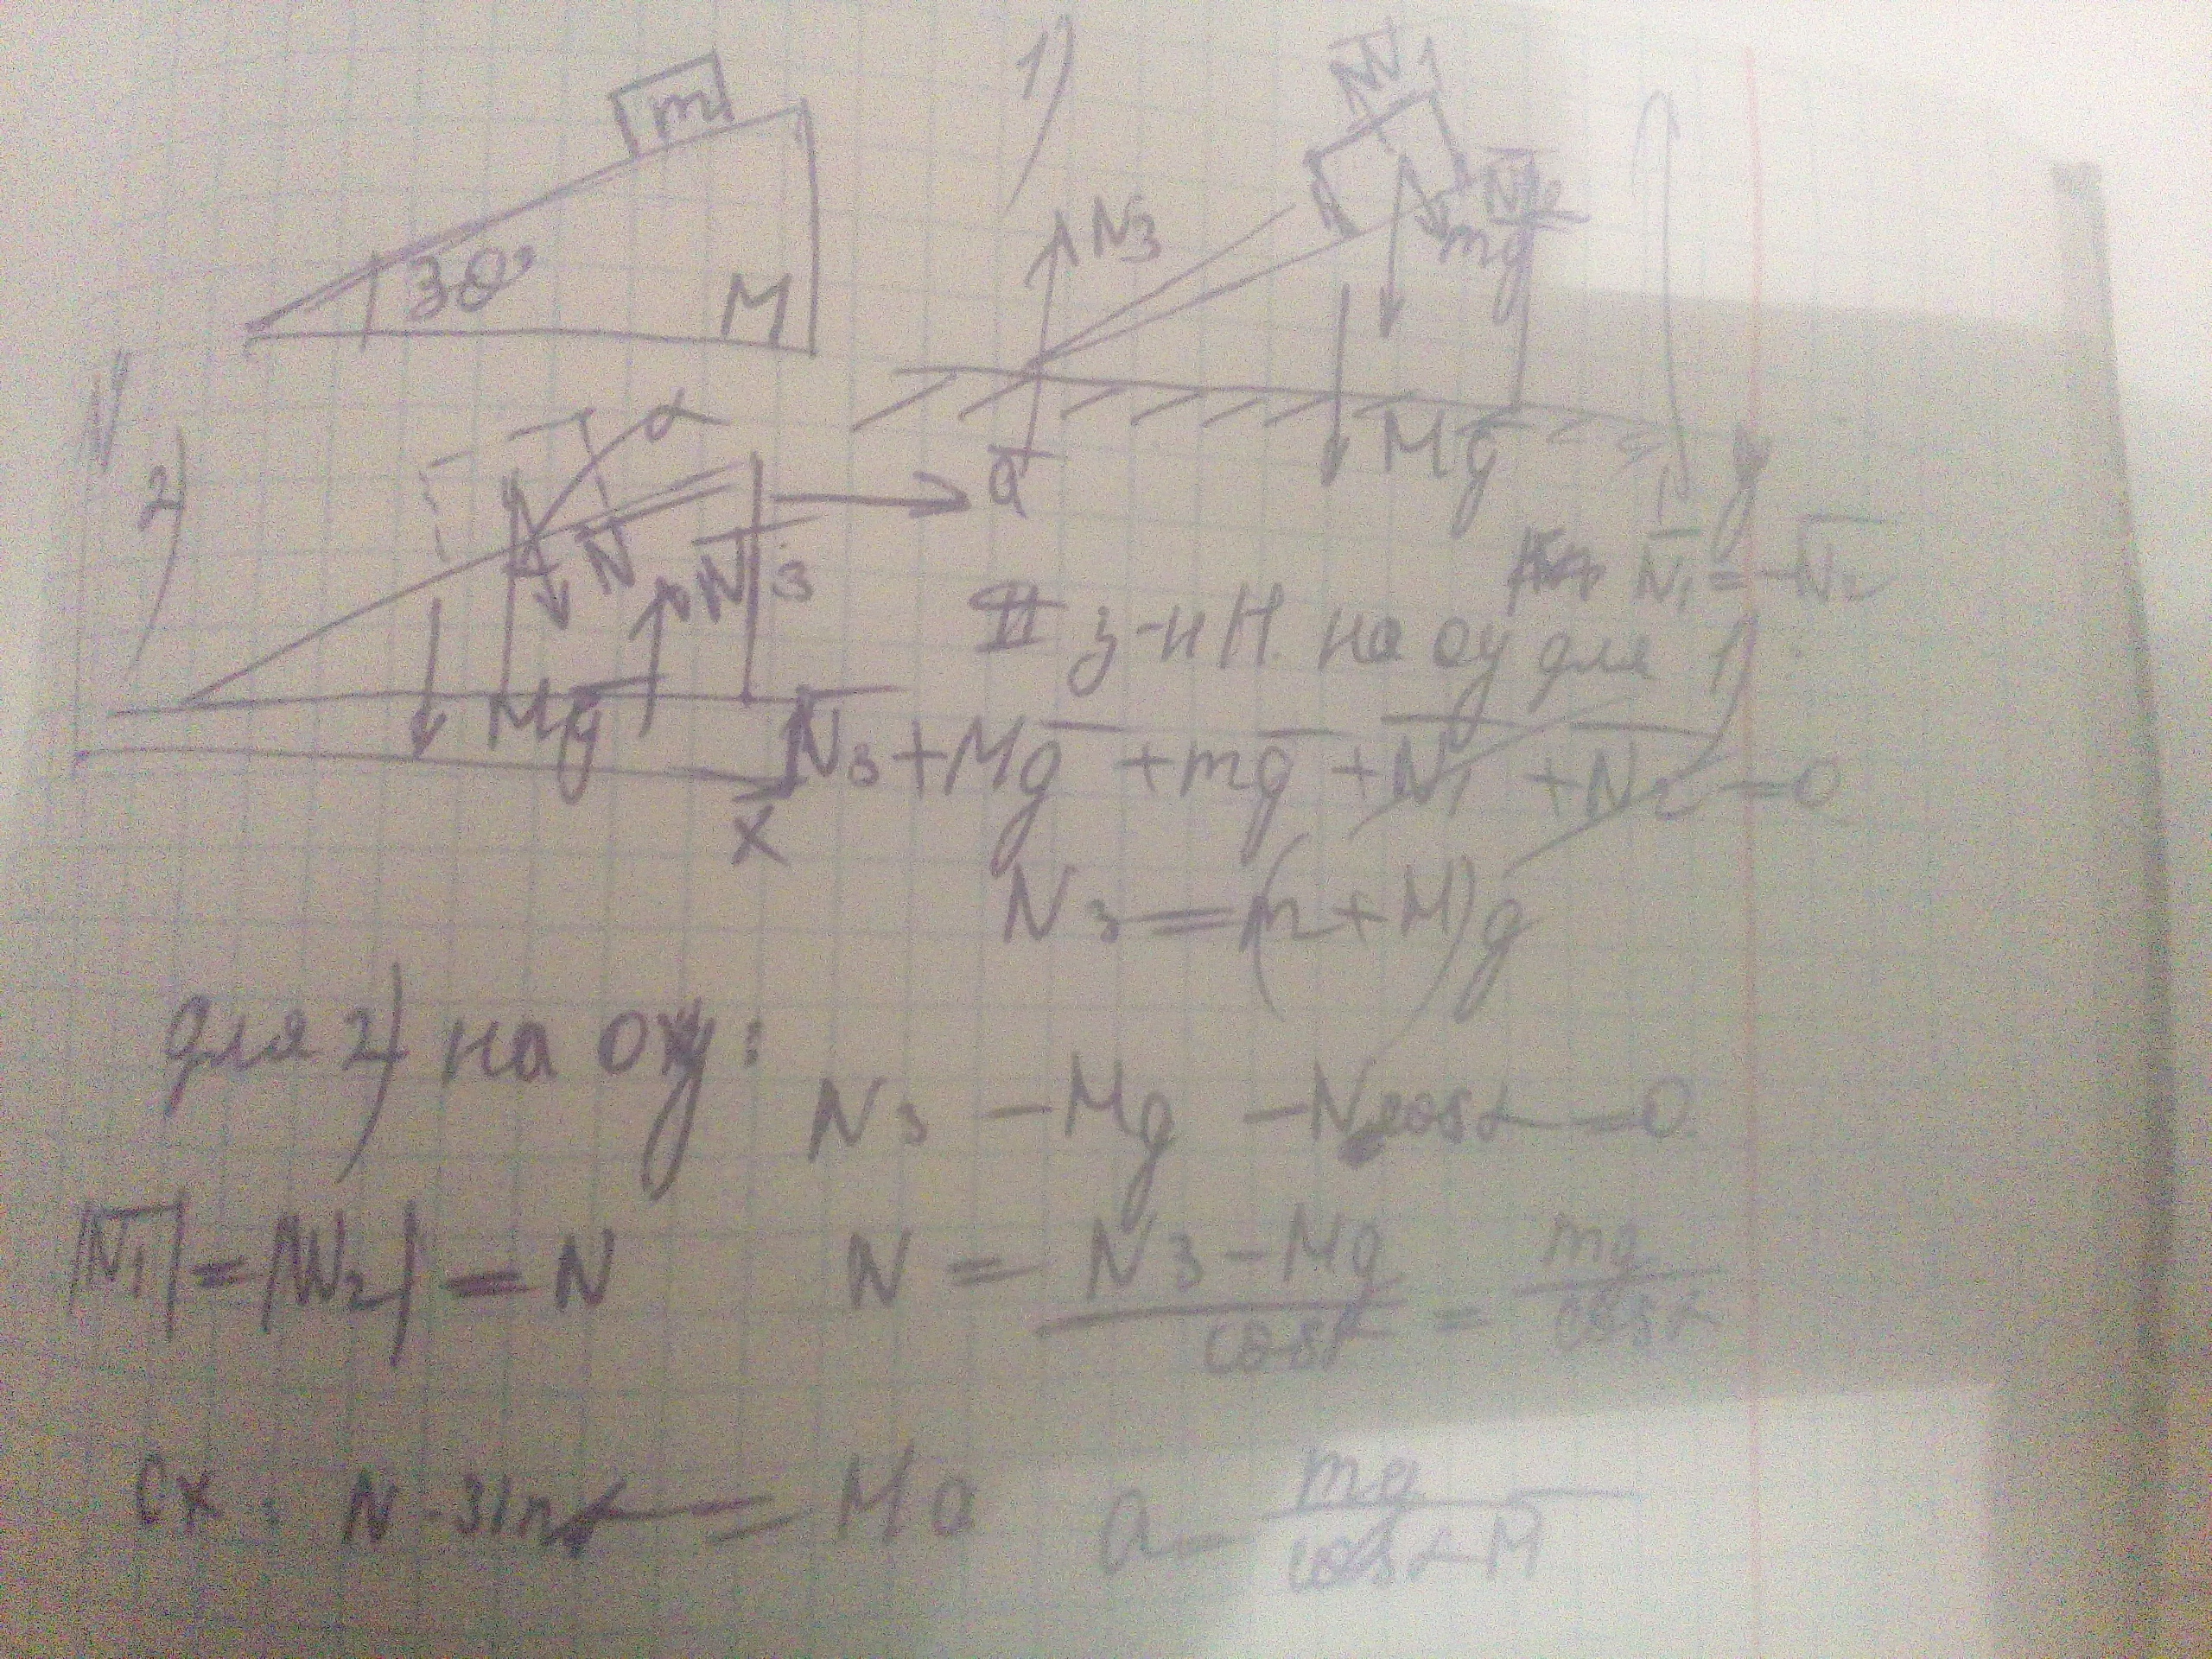 m
30°
M
1)
N₁
N₃
N₂
mg
Mg
y
2)
α
N
N₃
a
Mg
x
N₁ = -N₂
II з-н Н. на оу для 1):
N₃ + Mg + mg + N₁ + N₂ = 0
N₃ = (m + M)g
для 2) на оу:
N₃ - Mg - N cosα = 0
|N₁| = |N₂| = N
N = (N₃ - Mg)/cosα = mg/cosα
Ox: N·sinα = Ma
a = mg/(cosα M)